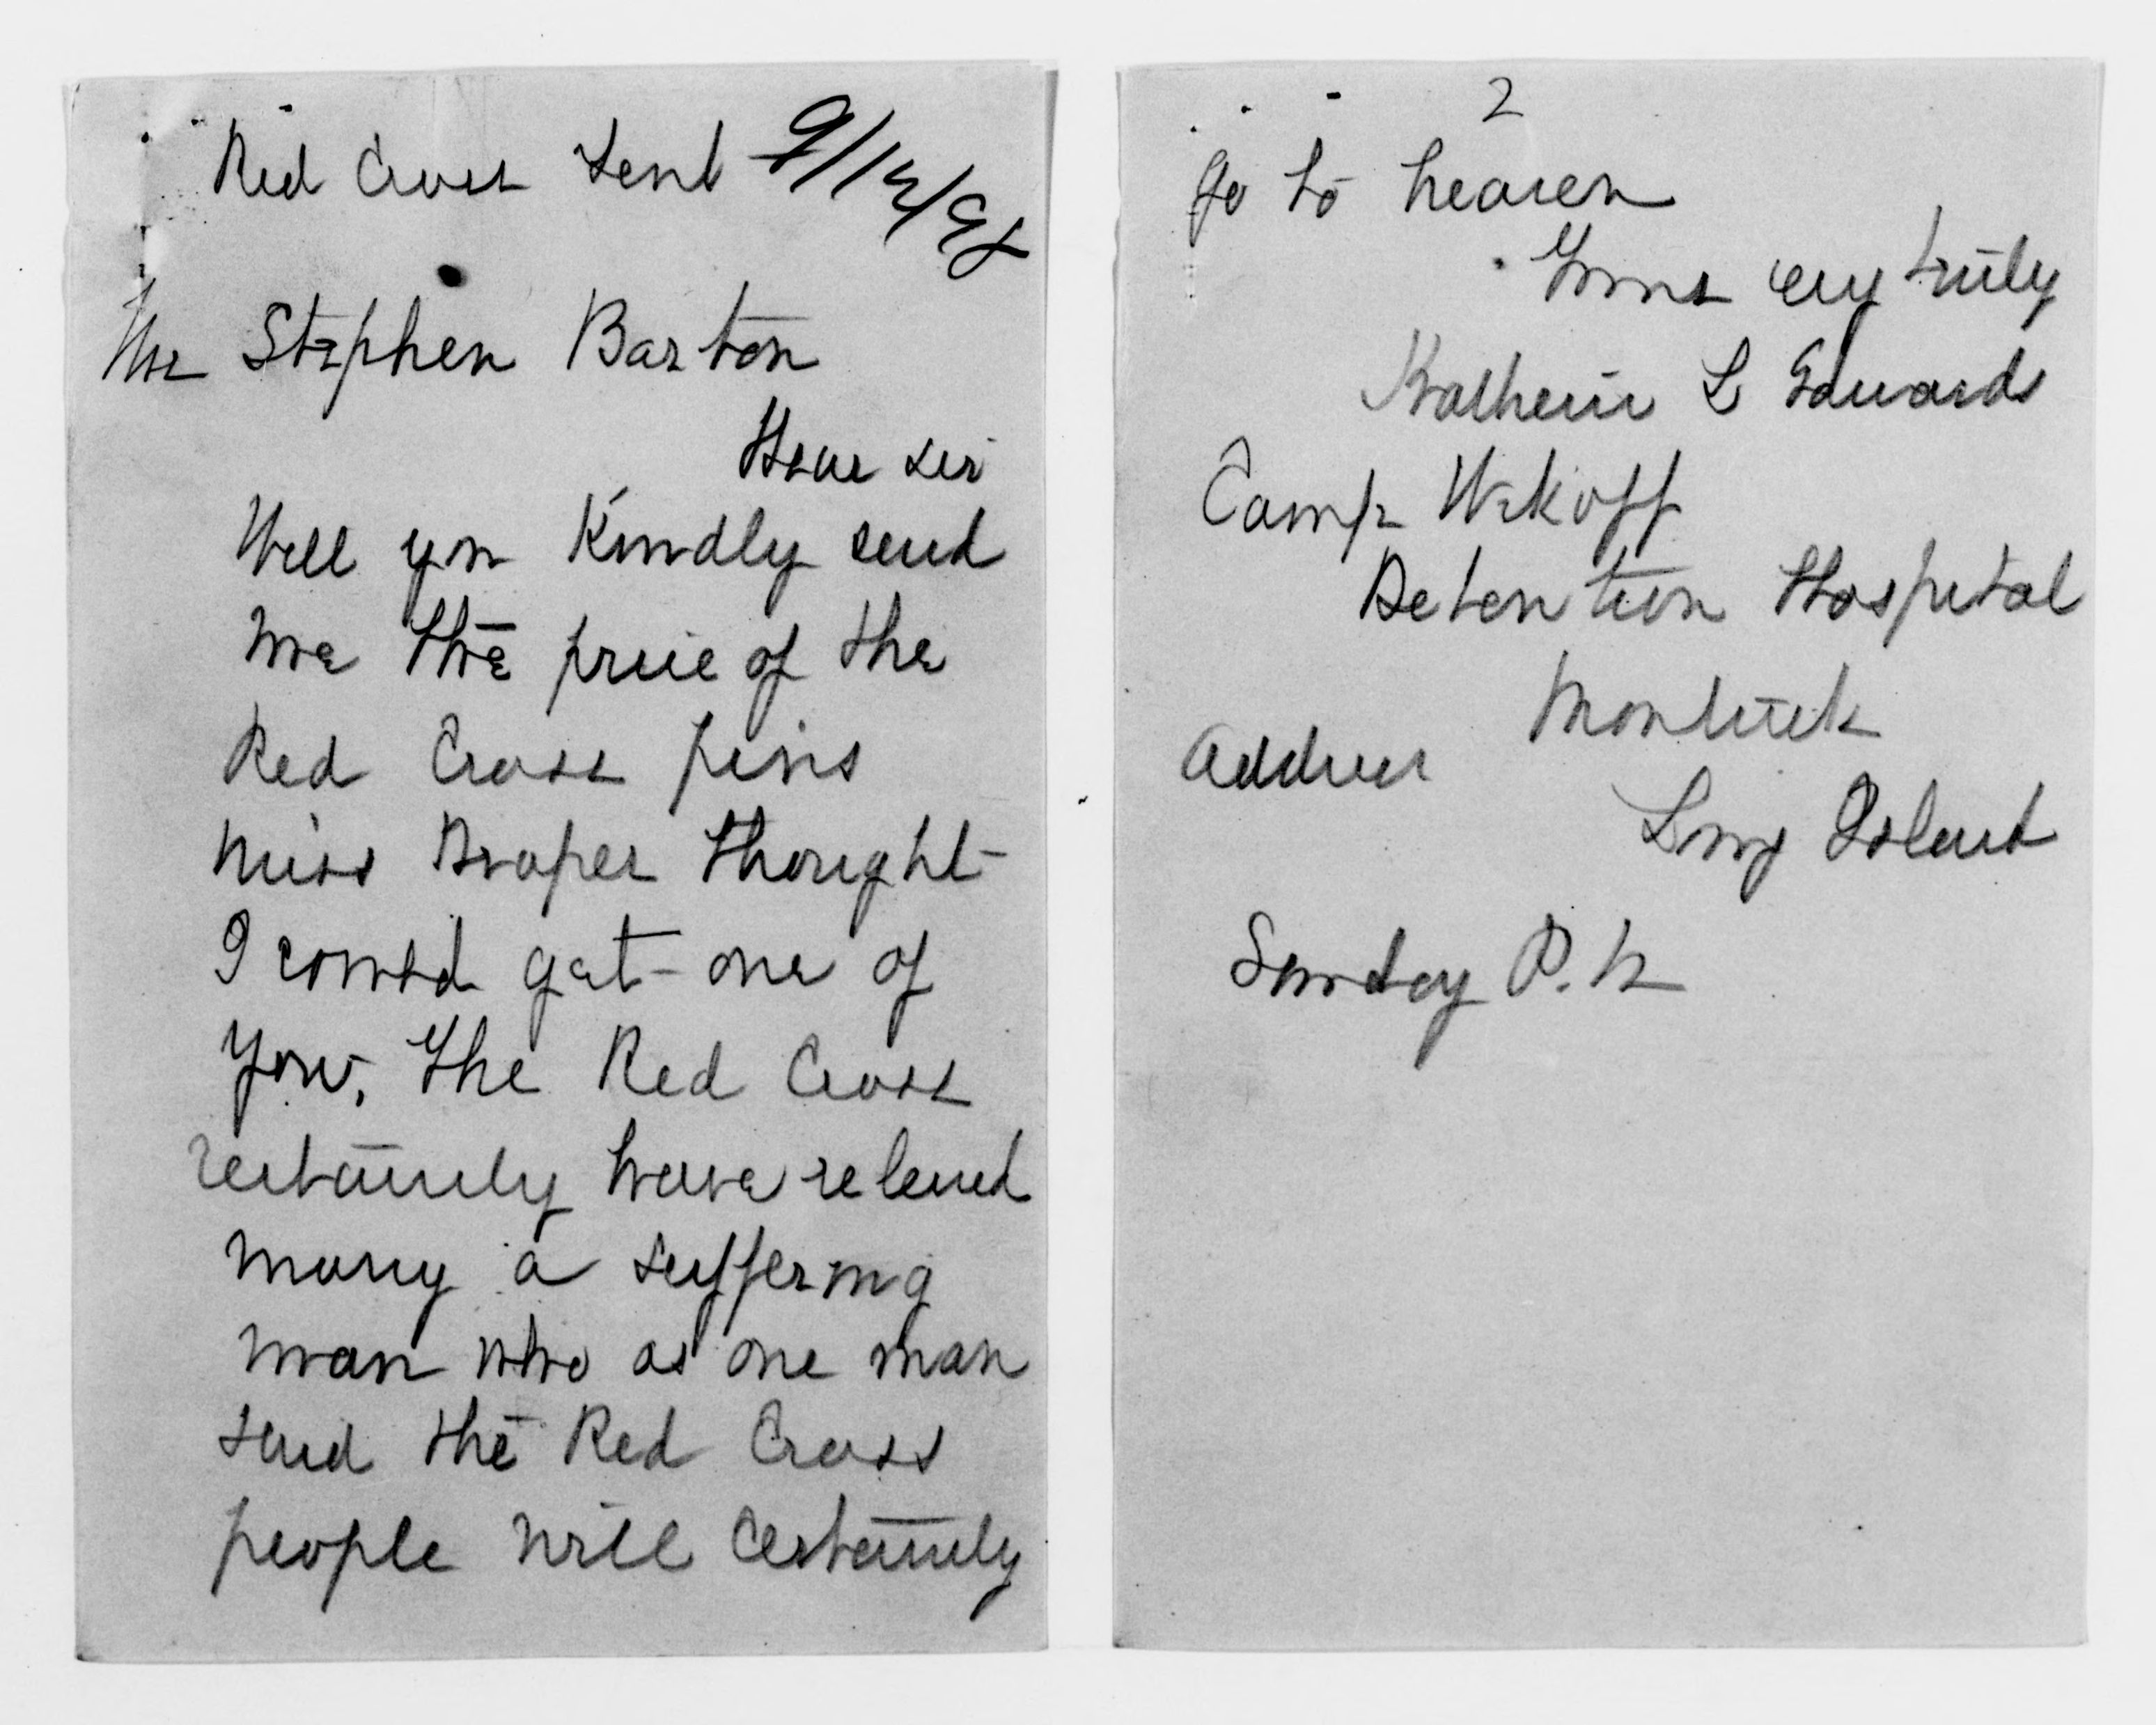 Red Cross Tent 9/12/98
Mr Stephen Barton
Dear Sir
Will you Kindly send
me the price of the
Red Cross pins
Miss Draper thought
I could get one of
you. The Red Cross
certainly have relieved
many a suffering
man who as one man
said the Red Cross
people will certainly
2
go to heaven
Yours very truly
Katherine L Edwards
Camp Wikoff
Detention Hospital
Montauk
Address
Long Island
Sunday P.M